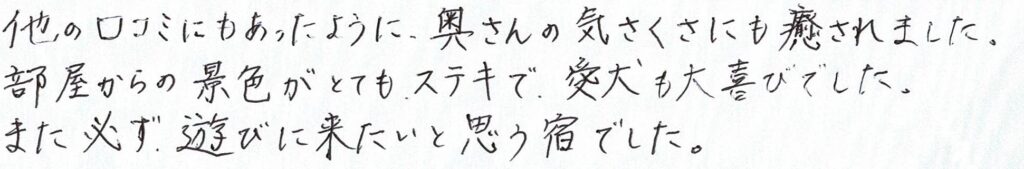 他の口コミにもあったように、奥さんの気さくさにも癒されました。
部屋からの景色がとても、ステキで、愛犬も大喜びでした。
また必ず、遊びに来たいと思う宿でした。